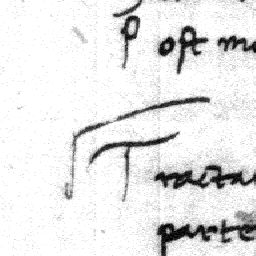 p oft m
Tracta
parte